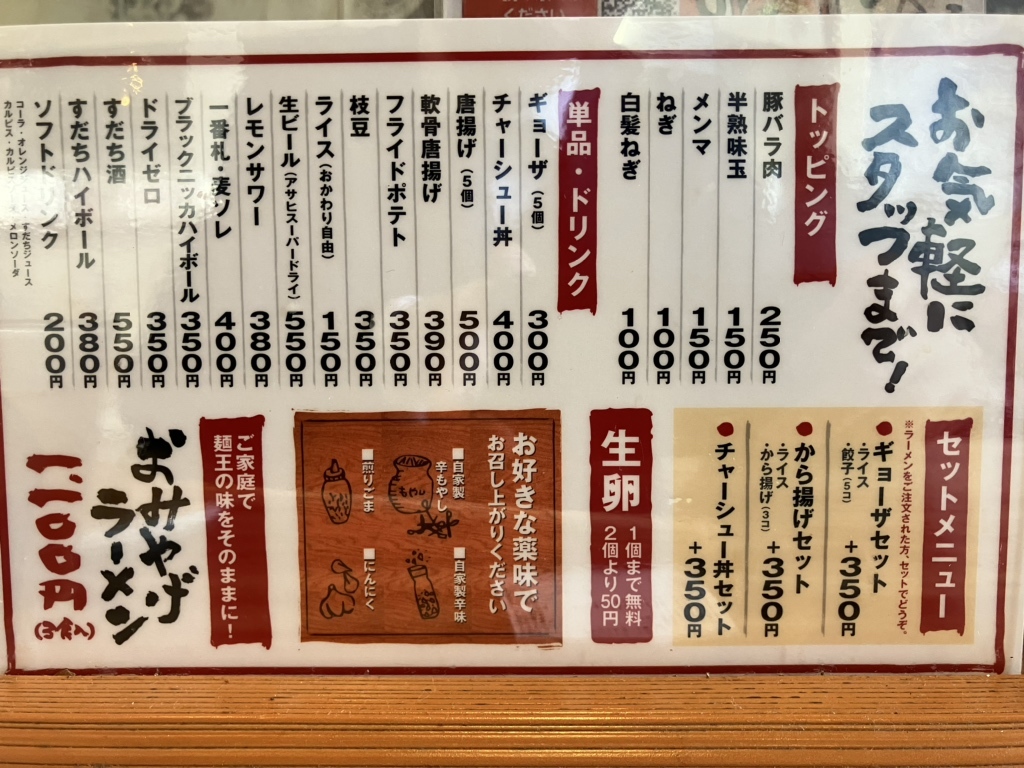 ください
お気軽に
スタッフまで!
トッピング
豚バラ肉 250円
半熟味玉 150円
メンマ 150円
ねぎ 100円
白髪ねぎ 100円
単品・ドリンク
ギョーザ(5個) 300円
チャーシュー丼 400円
唐揚げ(5個) 500円
軟骨唐揚げ 390円
フライドポテト 350円
枝豆 350円
ライス(おかわり自由) 150円
生ビール(アサヒスーパードライ) 550円
レモンサワー 380円
一番札・麦ソレ 400円
ブラックニッカハイボール 350円
ドライゼロ 350円
すだち酒 550円
すだちハイボール 380円
ソフトドリンク 200円
コーラ・オレンジ すだちジュース
カルピス・カルピ メロンソーダ
セットメニュー
※ラーメンをご注文された方、セットでどうぞ。
●ギョーザセット +350円
・ライス
・餃子(5コ)
●から揚げセット +350円
・ライス
・から揚げ(3コ)
●チャーシュー丼セット +350円
生卵
1個まで無料
2個より50円
お好きな薬味で
お召し上がりください
■自家製
辛もやし
もやし
■自家製辛味
■煎りごま
■にんにく
ご家庭で
麺王の味をそのままに!
おみやげ
ラーメン
1,100円
(3食入)